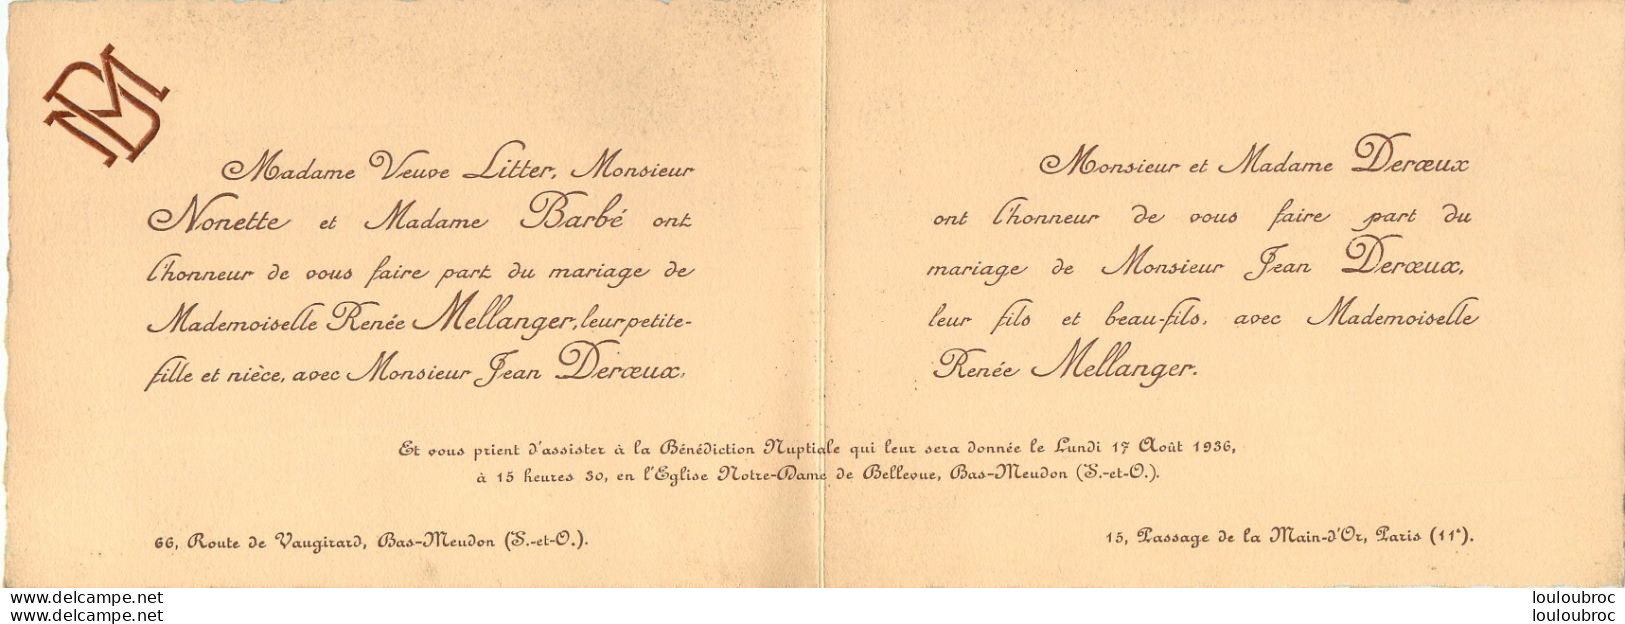 DM
Madame Veuve Litter, Monsieur
Nonette et Madame Barbé ont
l'honneur de vous faire part du mariage de
Mademoiselle Renée Mellanger, leur petite-
fille et nièce, avec Monsieur Jean Derœux.
Monsieur et Madame Derœux
ont l'honneur de vous faire part du
mariage de Monsieur Jean Derœux,
leur fils et beau-fils, avec Mademoiselle
Renée Mellanger.
Et vous prient d'assister à la Bénédiction Nuptiale qui leur sera donnée le Lundi 17 Août 1936,
à 15 heures 30, en l'Eglise Notre-Dame de Bellevue, Bas-Meudon (S.-et-O.).
66, Route de Vaugirard, Bas-Meudon (S.-et-O.).
15, Passage de la Main-d'Or, Paris (11e).
www.delcampe.net
www.delcampe.net
louloubroc
louloubroc